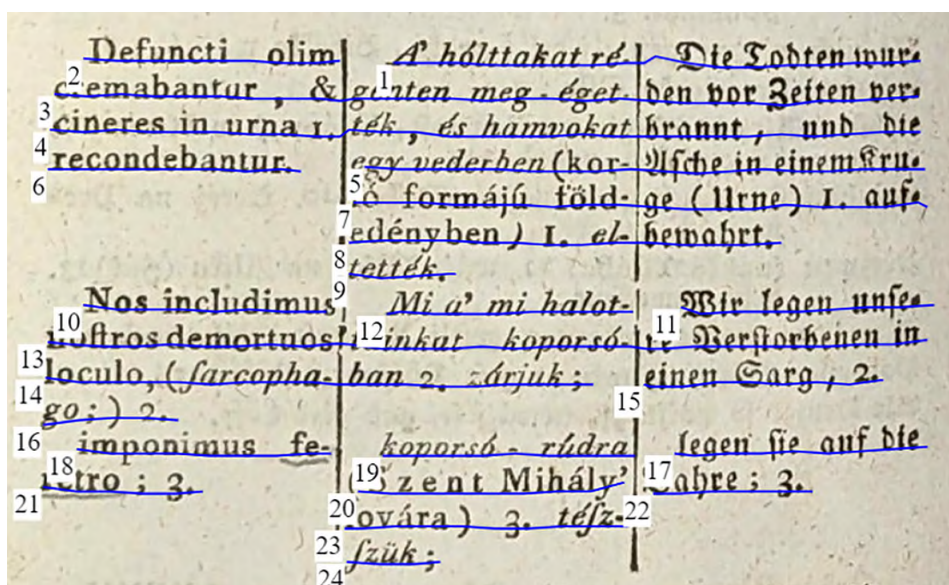 Defuncti olim
cremabantur, &
cineres in urna 1.
recondebantur.
Nos includimus
noſtros demortuos
loculo, (ſarcopha-
go;) 2.
imponimus fe-
retro; 3.
A' hólttakat ré-
genten meg-éget-
ték, és hamvokat
egy vederben (kor-
só formájú föld-
edényben) 1. el-
tették.
Mi a' mi halot-
tainkat koporsó-
ban 2. zárjuk;
koporsó-rúdra
(Szent Mihály'
lovára) 3. téſz-
ſzük;
Die Todten wur-
den vor Zeiten ver-
brannt, und die
Aſche in einem Kru-
ge (Urne) 1. auf-
bewahrt.
Wir legen unſe-
re Verſtorbenen in
einen Sarg, 2.
legen ſie auf die
Bahre; 3.